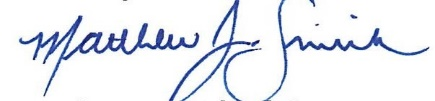 Matthew J. Smith